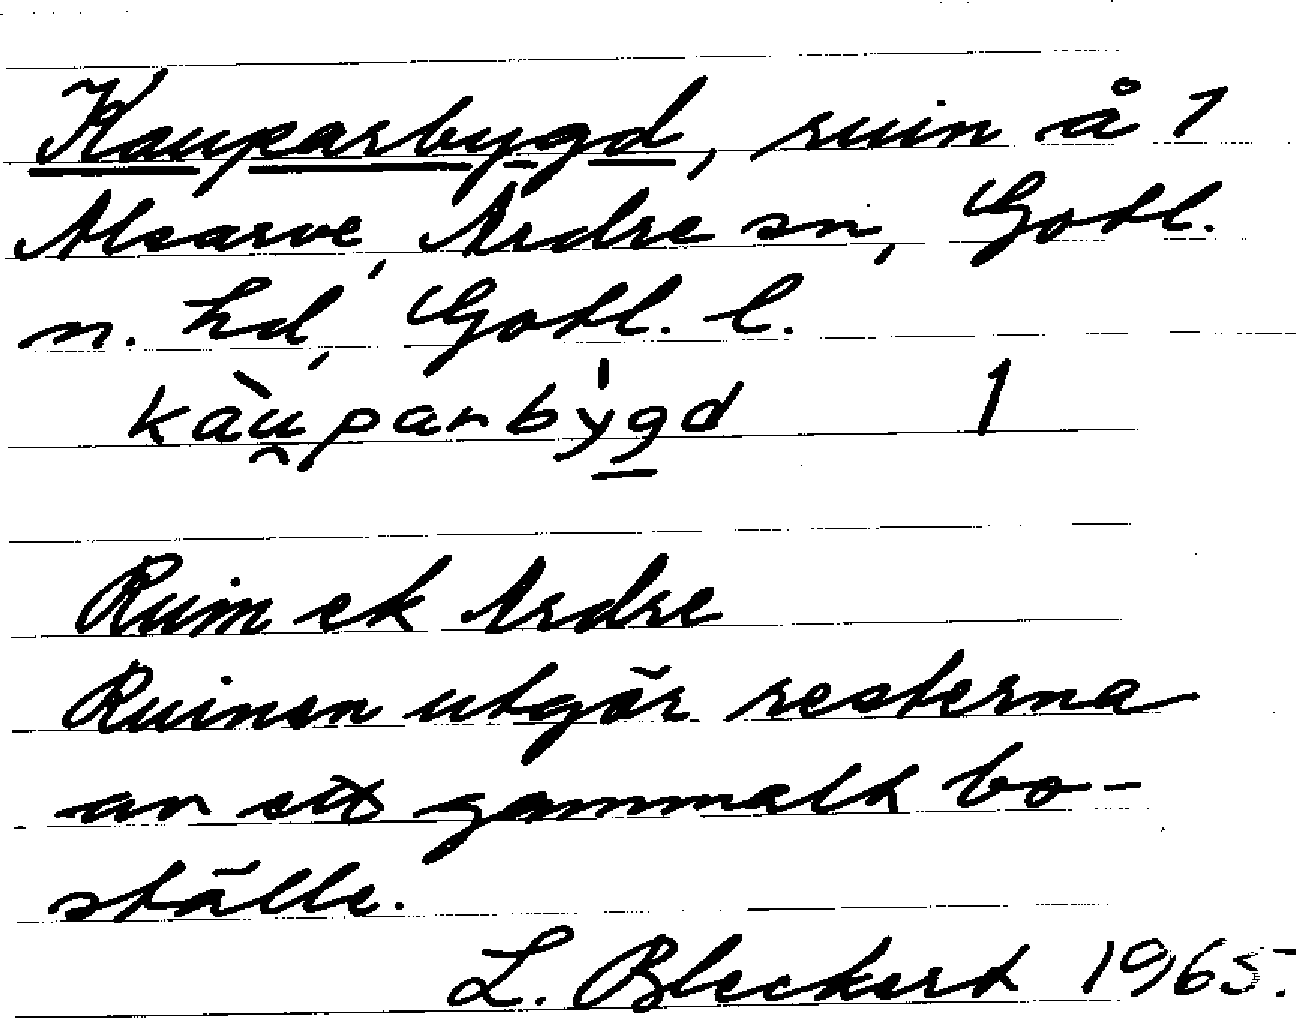 Kauparbygd, ruin å 1
Alsarve, Ardre sn, Gotl.
n. hd, Gotl. l.
kàu̯parby̍gd 1
Ruin ek Ardre
Ruinen utgör resterna
av ett gammalt bo-
ställe.
L. Bleckert 1965.